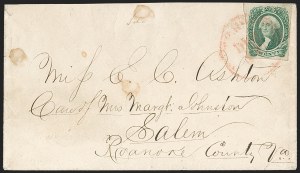 Miss E. C. Ashton
Care of Mrs Margt. Johnston
Salem
Roanoke County Va